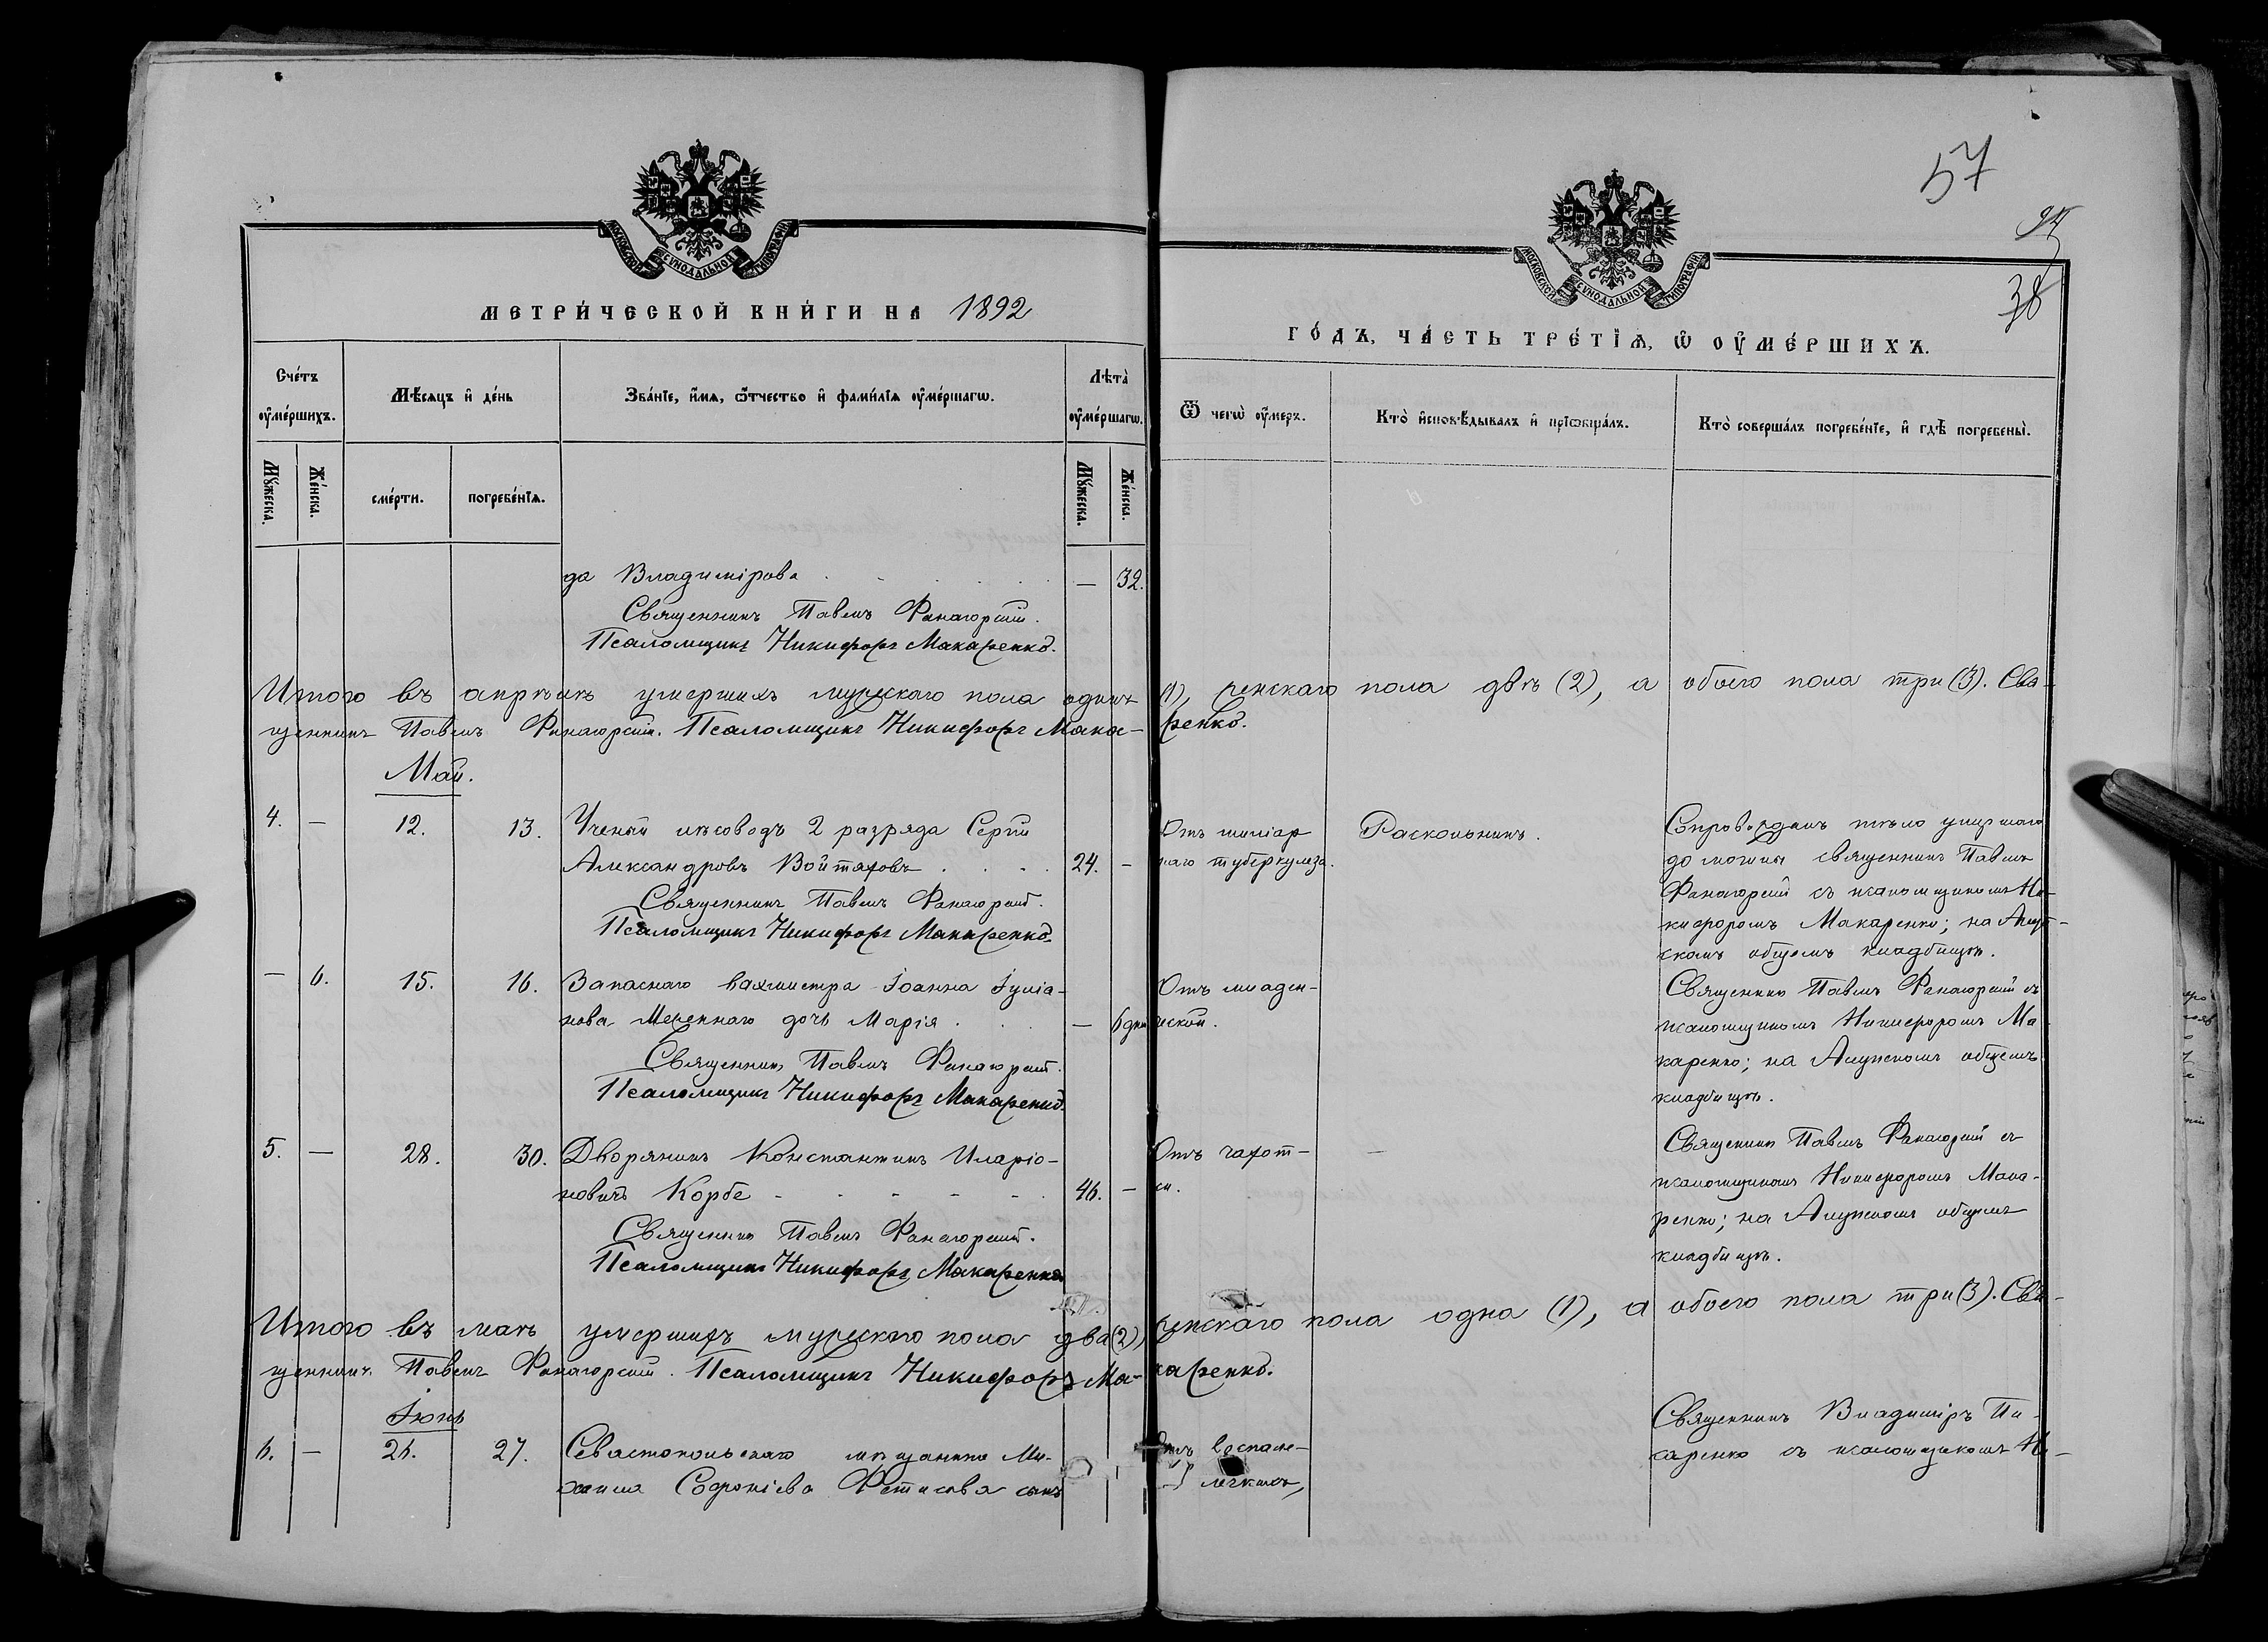 57
94
38
МОСКОВСКОЙ СѴНОДАЛЬНОЙ ТИПОГРАФІИ
МОСКОВСКОЙ СѴНОДАЛЬНОЙ ТИПОГРАФІИ
МЕТРИ́ЧЕСКОЙ КНИ́ГИ НА 1892
ГО́ДЪ, ЧА́СТЬ ТРЕ́ТІѦ, Ѡ ОУ҆МЕ́РШИХЪ.
Сче́тъ оу҆ме́ршихъ.
Мѣ́сѧцъ и҆ де́нь
Зва́нїе, и҆́мѧ, ѻ҆́тчество и҆ фами́лїѧ оу҆ме́ршагѡ.
Лѣта̀ оу҆ме́ршагѡ.
Ѿ чегѡ̀ оу҆́меръ.
Кто̀ и҆сповѣ́дывалъ и҆ прїѡбща́лъ.
Кто̀ соверша́лъ погребе́нїе, и҆ гдѣ̀ погребены̀.
Мꙋ́жеска.
Же́нска.
сме́рти.
погребе́нїѧ.
Мꙋ́жеска.
Же́нска.
да Владимірова — 32.
Священникъ Павелъ Фанагорскій.
Псаломщикъ Никифоръ Макаренко.
Итого въ апрѣлѣ умершихъ мужескаго пола одинъ (1), женскаго пола двѣ (2), а обоего пола три (3). Свя-
щенникъ Павелъ Фанагорскій. Псаломщикъ Никифоръ Макаренко.
Май.
4. — 12. 13. Ученый лѣсоводъ 2 разряда Сергій
Александровъ Войтяховъ 24. —
Священникъ Павелъ Фанагорскій.
Псаломщикъ Никифоръ Макаренко.
Отъ миліар
наго туберкулеза.
Раскольникъ.
Сопровождалъ тѣло умершаго
до могилы священникъ Павелъ
Фанагорскій съ псаломщикомъ Ни-
кифоромъ Макаренко; на Алуп-
скомъ общемъ кладбищѣ.
— 6. 15. 16. Запаснаго вахмистра Іоанна Іуліа-
нова дочь Марія — 6 дн.
Священникъ Павелъ Фанагорскій.
Псаломщикъ Никифоръ Макаренко.
Отъ младен-
ческой.
Священникъ Павелъ Фанагорскій съ
псаломщикомъ Никифоромъ Ма-
каренко; на Алупскомъ общемъ
кладбищѣ.
5. — 28. 30. Дворянинъ Константинъ Иларіо-
новичъ Корбе 46. —
Священникъ Павелъ Фанагорскій.
Псаломщикъ Никифоръ Макаренко
Отъ чахот-
ки.
—
Священникъ Павелъ Фанагорскій съ
псаломщикомъ Никифоромъ Мака-
ренко; на Алупскомъ общемъ
кладбищѣ.
Итого въ маѣ умершихъ мужескаго пола два (2), женскаго пола одна (1), а обоего пола три (3). Свя-
щенникъ Павелъ Фанагорскій. Псаломщикъ Никифоръ Макаренко.
Іюнь
6. — 26. 27. Севастопольскаго мѣщанина Ми-
хаила Софоніева Фетисова сынъ
Отъ воспале-
легкихъ,
Священникъ Владиміръ Пи-
саренко съ псаломщикомъ Ни-